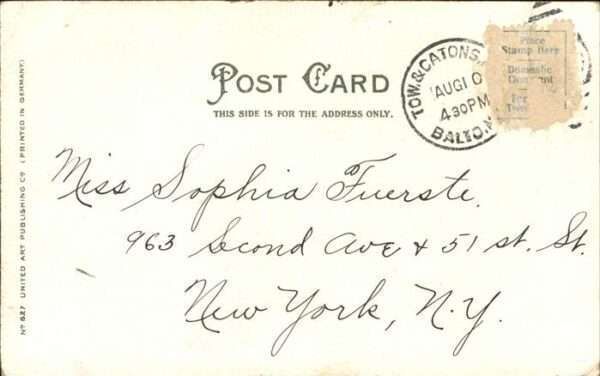 POST CARD
THIS SIDE IS FOR THE ADDRESS ONLY.
TOW. & CATONS.
AUG 10
4 30 PM
BALTO.
Place
Stamp Here
Domestic
For
Miss Sophia Fuerste.
963 Second Ave + 51 st. St.
New York, N.Y.
No 627 UNITED ART PUBLISHING CO (PRINTED IN GERMANY)